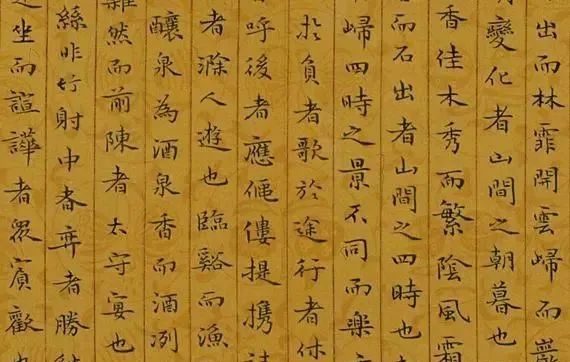 出而林霏開雲歸而
變化者山間之朝暮也
香佳木秀而繁陰風霜
而石出者山間之四時也
歸四時之景不同而樂
扵負者歌於途行者休
呼後者應傴僂提携
者滁人遊也臨谿而漁
釀泉為酒泉香而酒冽
雜然而前陳者太守宴也
絲非竹射中者弈者勝
坐而諠譁者衆賓歡也